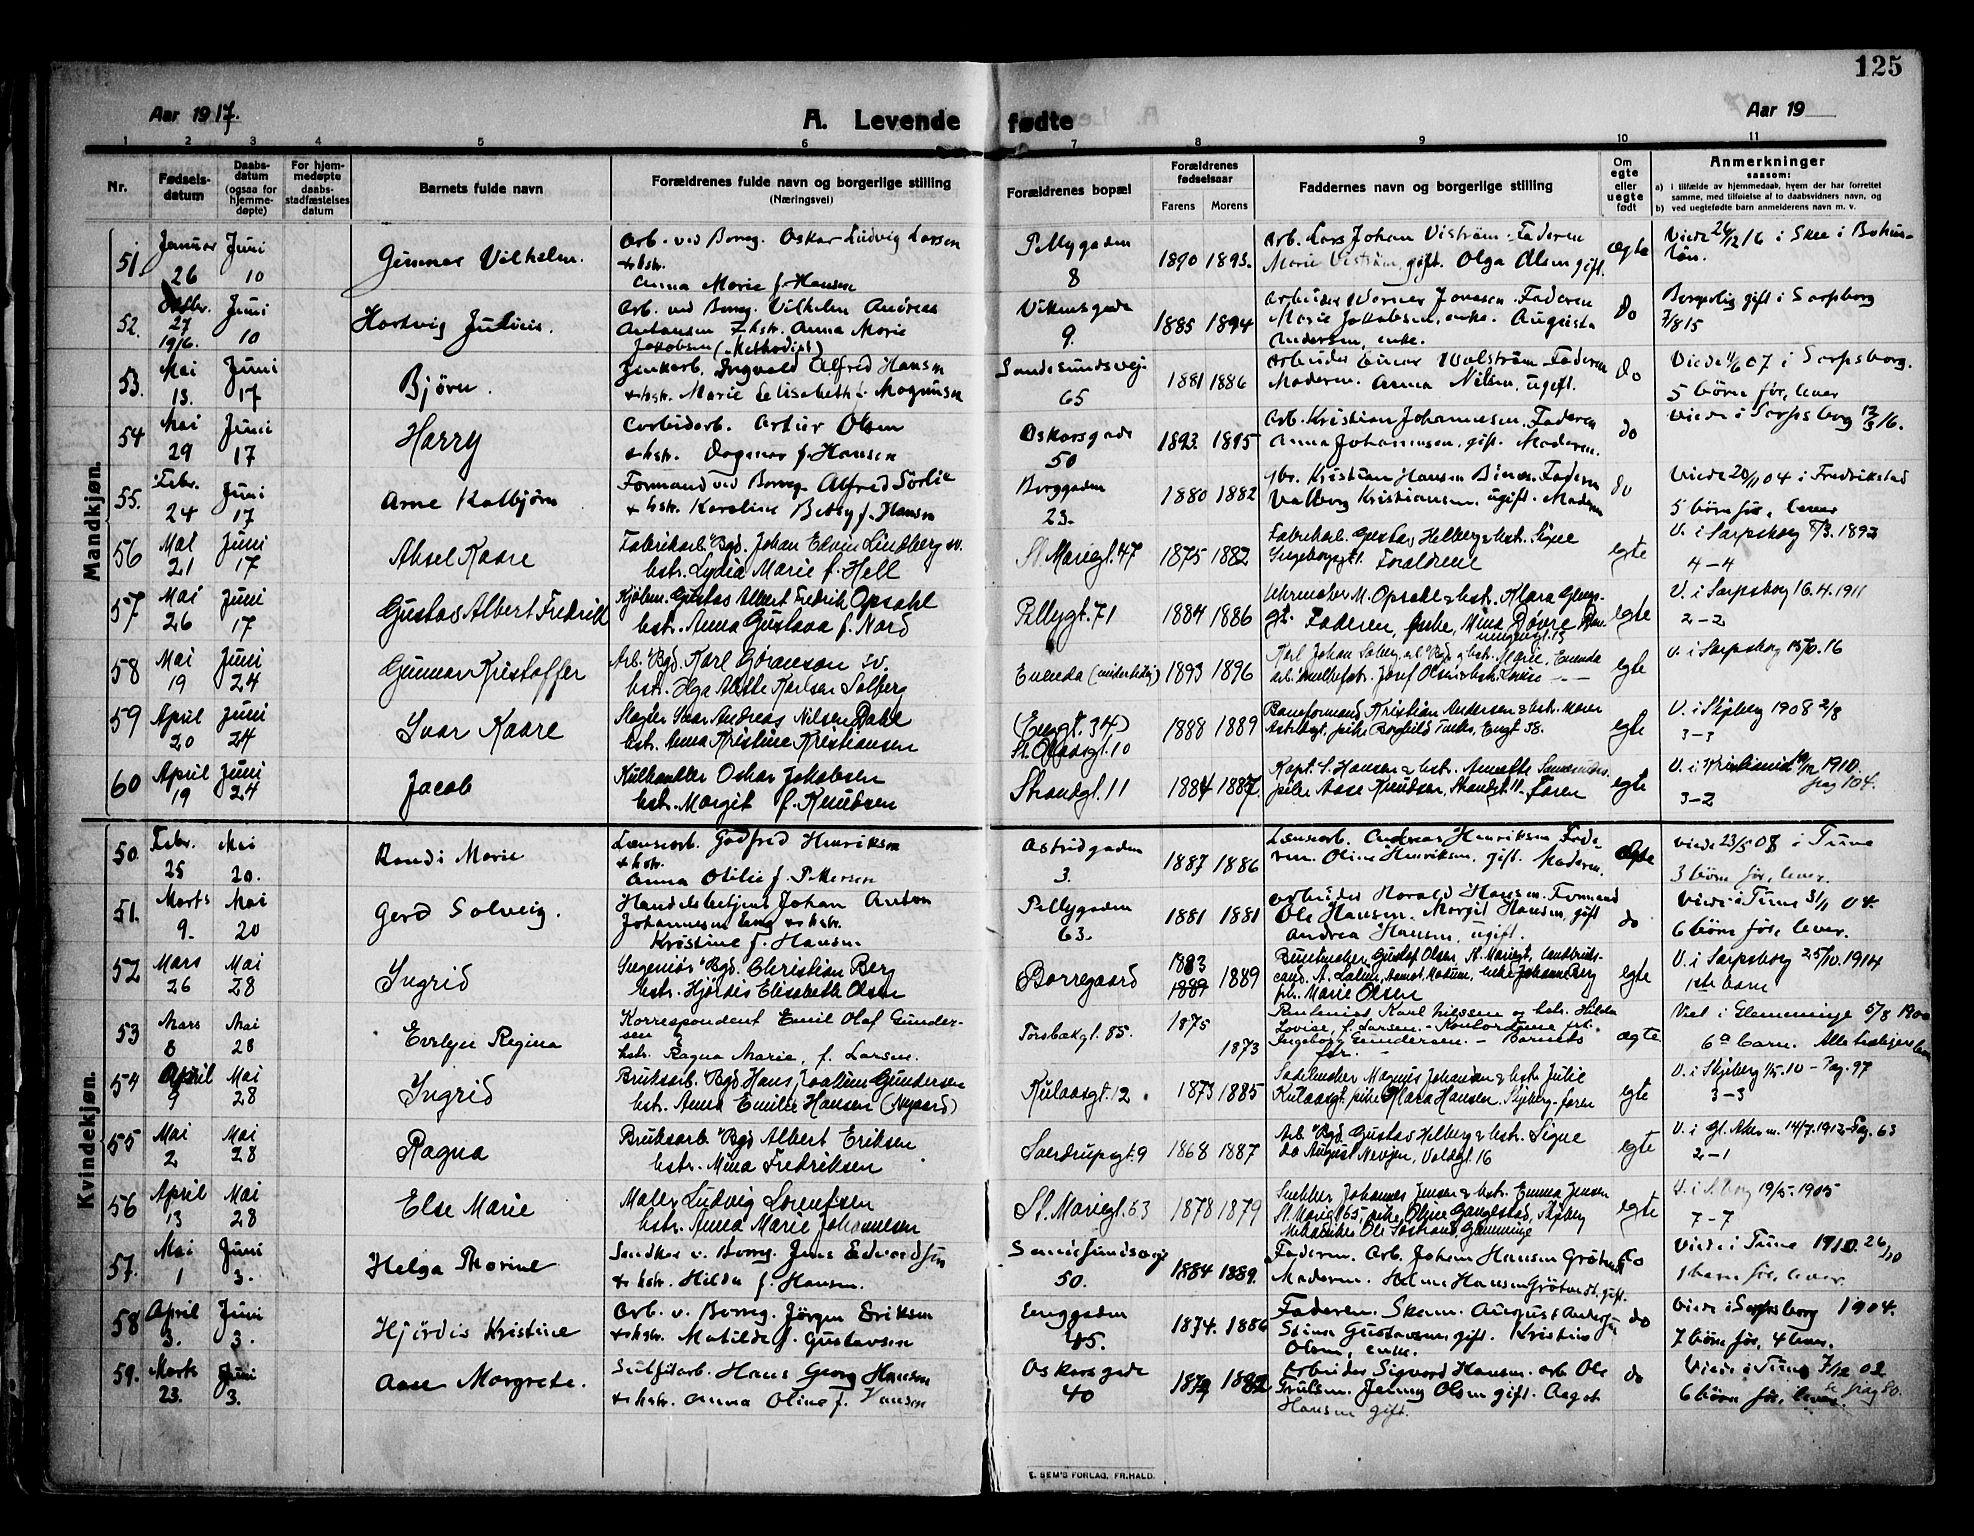 125
Aar 1917.
A. Levende fødte
Aar 19
1 2 3 4 5 6 7 8 9 10 11
Nr.
Fødsels-
datum
Daabs-
datum
(ogsaa for
hjemme-
døpte)
For hjem-
medøpte
daabs-
stadfæstelses
datum
Barnets fulde navn
Forældrenes fulde navn og borgerlige stilling
(Næringsvei)
Forældrenes bopæl
Forældrenes
fødselsaar
Farens Morens
Faddernes navn og borgerlige stilling
Om
egte
eller
uegte
født
Anmerkninger
saasom:
a) i tilfælde av hjemmedaab, hvem der har forrettet
samme, med tilføielse af to daabsvidners navn, og
b) ved uegtefødte barn anmelderens navn m. v.
Mandkjøn.
51 Januar 26 Juni 10 Gunnar Vilhelm.
Arb. ved Borreg. Oskar Ludvig Larsen
+ hstr.
Anna Marie f. Hansen
Pellygaden 8 1890 1893.
Arb. Lars Johan Viström. Faderen
Marie Viström, gift. Olga Olsen gift.
ægte
Viede 26/12 16 i Skee i Bohus-
län.
52. Oktbr. 27 1916. Juni 10 Hartvig Julius.
Arb. ved Borreg. Vilhelm Andreas
Antonsen & hstr. Anna Marie
Jakobsen (Methodist)
Vikensgade 9. 1885 1894
Arbeider Werner Jonasen. Faderen
Marie Jakobsen, enke. Augusta
Andersen, enke.
do
Borgerlig gift i Sarpsborg
7/8 15
53. Mai 13. Juni 17 Bjørn.
Ingvald Alfred Hansen
+ hstr. Marie Elisabeth f. Magnusen
Sandesundsvei 65 1881 1886
Arbeider Einar Wolström. Faderen
Moderen. Anna Nilsen, ugift.
do
Viede 07 i Sarpsborg.
5 børn før, lever
54 Mai 29 Juni 17 Harry
Carbidarb. Artur Olsen
+ hstr. Dagmar f. Hansen
Oskarsgade 50 1893. 1895
Arb. Kristian Johannesen. Faderen
Anna Johannesen, gift. Moderen.
do
Viede i Sarpsborg 16.
55. Febr. 24 Juni 17 Arne Kolbjørn
Formand ved Borreg. Alfred Sørlie
+ hstr. Karoline Betsy f. Hansen
Borggaden 23. 1880 1882
Kristian Hansen Faderen
Valborg Kristiansen, ugift. Moderen
do
Viede 20/11 04 i Fredrikstad
5 børn før, lever
56 Mai 21 Juni 17 Aksel Kaare
Fabrikarb. Bgd. Johan Edvin Lindberg sv.
hstr. Lydia Marie f. Hell
St. Mariegt. 47 1875 1882
Fabrikarb. Gustav Helberg & hstr. Signe
Ingeborgsgt. Forældrene
egte
V. i Sarpsborg 5/3. 1893
4 – 4
57 Mai 26 Juni 17 Gustav Albert Fredrik
Kjøbm. Gustav Albert Fredrik Opsahl
hstr. Anna Gustava f. Nord
Pellygt. 71 1884 1886
Uhrmaker M. Opsahl & hstr. Klara
gt. Faderen, Enke, Mina Dovre
egte
V. i Sarpsborg 16.4.1911
2 – 2
58 Mai 19 Juni 24 Gunnar Kristoffer
Arb. Bgd. Karl Göranson sv.
hstr. Olga Anette Karlsen Solberg
Enenda (midlertidig) 1893 1896
Karl Johan Solberg & hstr. Marie, Enenda
arb. Josef Olsen & hstr. Louise – –
egte
V. i Sarpsborg 16
59 April 20 Juni 24 Ivar Kaare
Slagter Ivar Andreas Nilsen Dahl
hstr. Anna Kristine Kristiansen
(Enggt. 34)
St. Olafsgt. 10 1888 1889
Baneformand Kristian Andersen & hstr. Maren
Astridsgt. pike Borghild Enggt. 58.
egte
V. i Skjeberg 1908 2/8
3 – 3
60 April 19 Juni 24 Jacob
Kulhandler Oskar Jakobsen
hstr. Margit f. Knudsen
Strandgt. 11 1884 1887
Kapt. S. Hansen & hstr. Annette
pike Aase Knudsen, Strandgt. 11. Faren
egte
V. i Kristiania 1910.
pag 104.
3 – 2
Kvindekjøn.
50. Febr. 25 Mai 20. Randi Marie
Lænsearb. Godfred Henriksen
+ hstr.
Anna Otilie f. Pettersen
Astridgaden 3. 1887 1886
Lænsearb. Andreas Henriksen Fade-
ren. Oline Henriksen, gift. Moderen.
ægte
Viede 23/5 08 i Tune
3 børn før, lever.
51. Marts 9. Mai 20 Gerd Solveig.
Handelsbetjent Johan Anton
Johannesen Eng + hstr.
Kristine f. Hansen
Pellygaden 63. 1881 1881
Arbeider Harald Hansen. Formand
Ole Hansen. Margit Hansen, gift
Andrea Hansen, ugift.
do
Viede i Tune 3/1 04.
6 børn før, lever.
52 Mars 26 Mai 28 Ingrid
Ingeniør Bgd. Christian Berg
hstr. Hjørdis Elisabeth Olsen
Borregaard 1883 1889 1889
Buntmaker Gustaf Olsen, St. Mariegt,
cand. A. Enke Johanne Berg
frk. Marie Olsen
egte
V. i Sarpsborg 25/10.1914
1ste barn
53 Mars 8 Mai 28 Evelyn Regina
Korrespondent Emil Olaf Gunder-
sen
hstr. Ragna Marie, f. Larsen.
Torsbækgt. 85. 1875 1873
Karl Nilssen og hstr. Hilda
Lovise, f. Larsen. – Kontordame frk.
Ingeborg Gundersen. – Barnets
far. –
ægte
Viet i Glemminge 5/8 1900
6te barn. Alle tidligere lever
54 April 9 Mai 28 Ingrid
Bruksarb. Bgd Hans Joakim Gundersen
hstr. Anna Emilie Hansen (Nygaard)
Kulaasgt. 12. 1873 1885
Sadelmaker Magnus Johansen & hstr. Julie
Kulaasgt. pike Klara Hansen, Skjeberg – faren
egte
V. i Skjeberg 1/5.10 – Pag. 97
3 – 3
55 Mai 2 Mai 28 Ragna
Bruksarb. Bgd Albert Eriksen
hstr. Mina Fredriksen
Sverdrupsgt. 9 1868 1887
Arb. Bgd. Gustav Helberg & hstr. Signe
do August Nevjen, Voldgt. 16
egte
V. i Gl. Aker m. 14/7.1912 – Pag. 63
2 – 1
56 April 13 Mai 28 Else Marie
Maler Ludvig Lorentsen
hstr. Anna Marie Johannesen
St. Mariegt. 63 1878 1879
Snekker Johannes Jensen & hstr. Emma Jensen
St. Mariegt 65, pike Oline Gangestad, Skjeberg
Ole Glemminge
egte
V. i S.borg 19/5.1905
7 – 7
57. Mai 1 Juni 3. Helga Thorine
v. Borreg. Jens Edvardsen
+ hstr. Hilda f. Hansen.
Sandesundsvei 50. 1884 1889.
Faderen. Arb. Johan Hansen
Moderen. Helene Hansen gift.
do
Viede i Tune 1910. 26/10
1 barn før, lever.
58 April 3. Juni 3. Hjørdis Kristine
Arb. v. Borreg. Jørgen Eriksen
+ hstr. Matilde f. Gustavsen
Enggaden 45. 1874. 1886
Faderen. Skom. August Andersen
Stina Gustavsen gift. Kristine
Olsen, enke.
do
Viede i Sarpsborg 1904.
7 børn før, 4 lever.
59. Marts 23. Juni 3. Aase Margrete.
Sulfitarb. Hans Georg Hansen
+ hstr. Anna Oline f. Hansen
Oskarsgade 40 1879 1882
Arbeider Sigvard Hansen. arb Ole
Trulsen. Jenny Olsen gift. Aagot
Hansen gift.
do
Viede i Tune 7/12 02
6 børn før, lever. pag 80.
E. SEM'S FORLAG, FR.HALD.